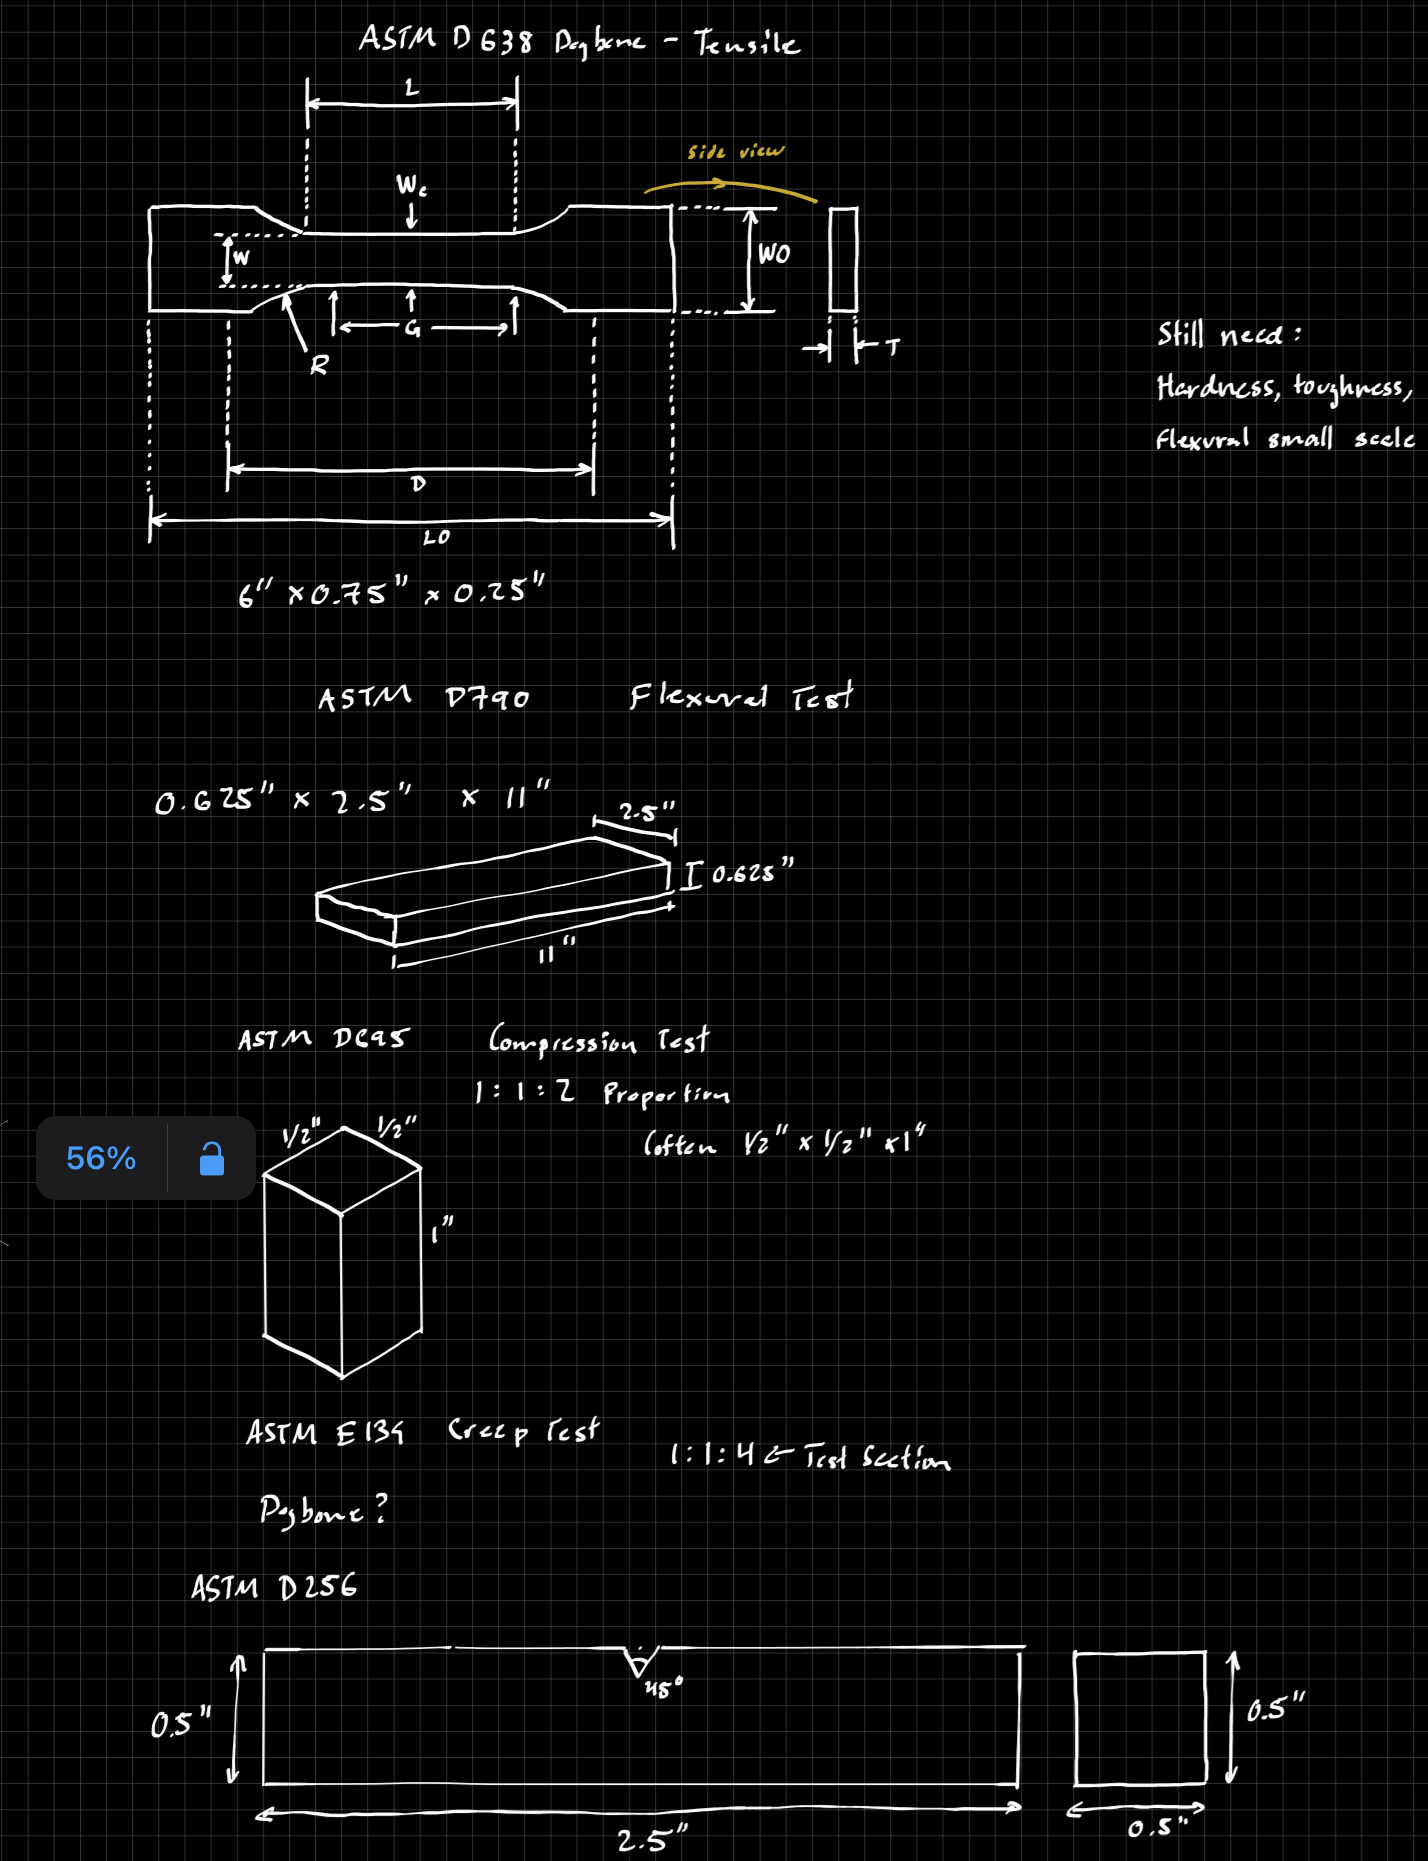 ASTM D638 Dogbone - Tensile
L
side view
Wc
W
WO
G
R
T
Still need:
Hardness, toughness,
Flexural small scale
D
LO
6" x 0.75" x 0.25"
ASTM D790 Flexural Test
0.625" x 2.5" x 11"
2.5"
0.625"
11"
ASTM D695 Compression Test
1:1:2 Proportion
(often 1/2" x 1/2" x 1"
1/2" 1/2"
56%
1"
ASTM E139 Creep Test
1:1:4 ← Test Section
Dogbone?
ASTM D256
45°
0.5"
0.5"
2.5"
0.5"